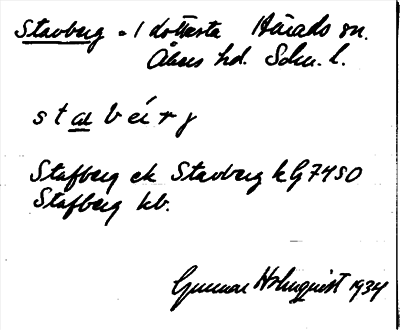 Stavberg = 1 dotterta Härads sn.
Åkers hd. Söhn. l.
stavbeirj
Stafberg ek Stavberg kG7450
Stafberg kb.
Gunnar Holmquist 1934